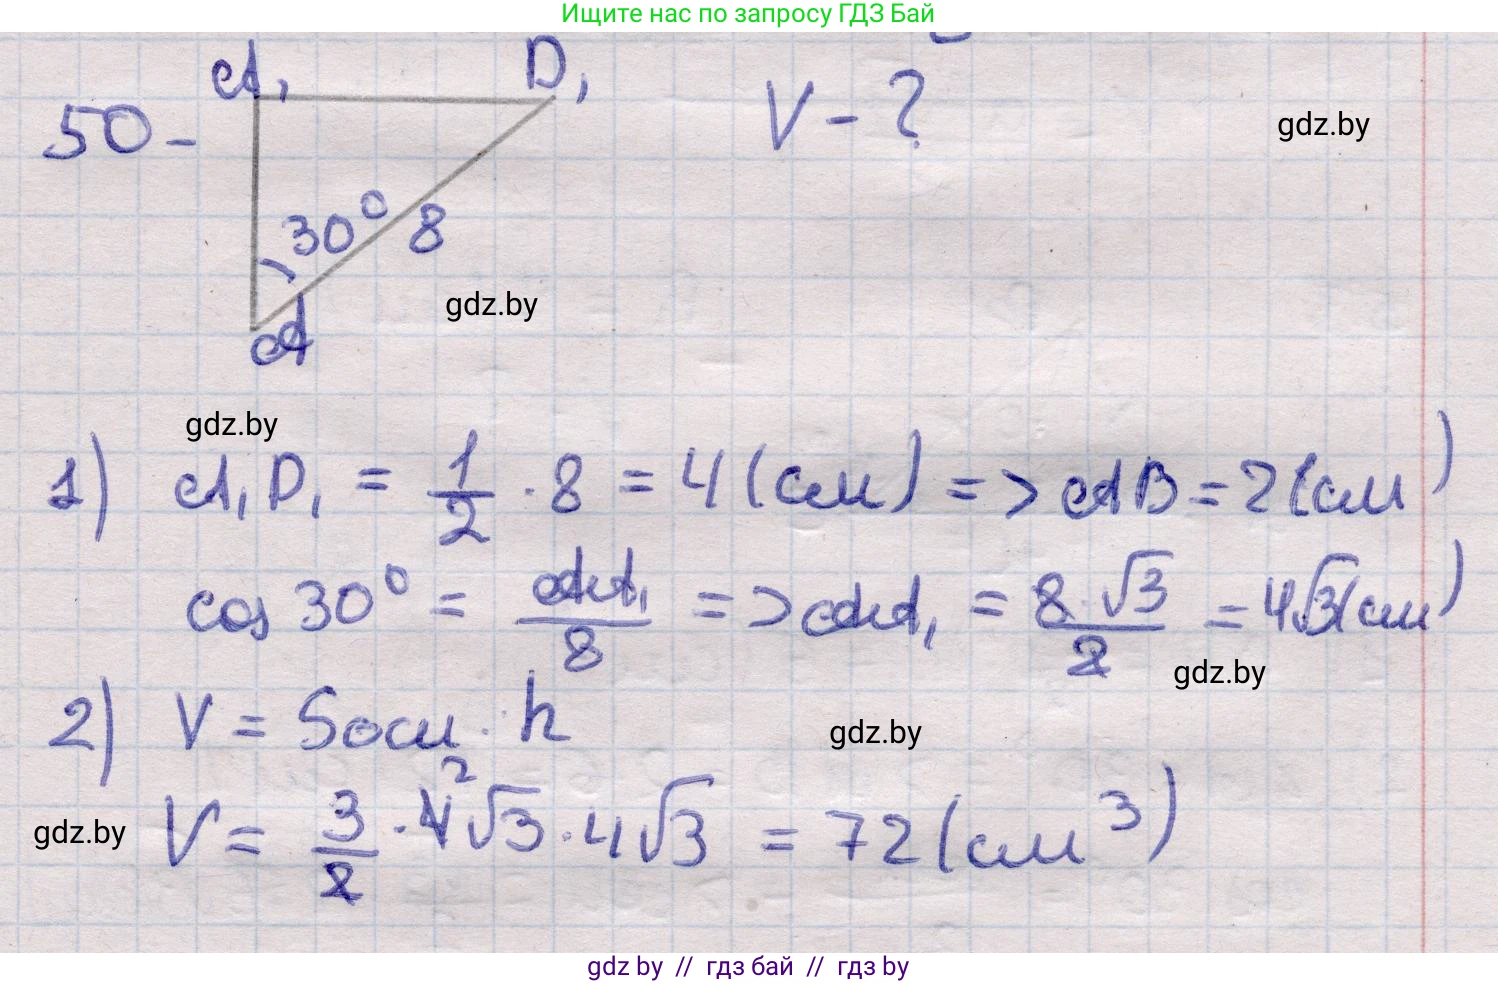 Ищите нас по запросу ГДЗ Бай
A₁ D₁
50 - V - ?
gdz.by
30° 8
gdz.by
A
gdz.by
1) A₁D₁ = 1/2 · 8 = 4 (см) => AB = 2 (см)
cos 30° = AA₁/8 => AA₁ = 8·√3/2 = 4√3 (см)
gdz.by
2) V = Sосн · h
gdz.by
V = 3/2 · 4²√3 · 4√3 = 72 (см³)
gdz.by
gdz by // гдз бай // гдз by